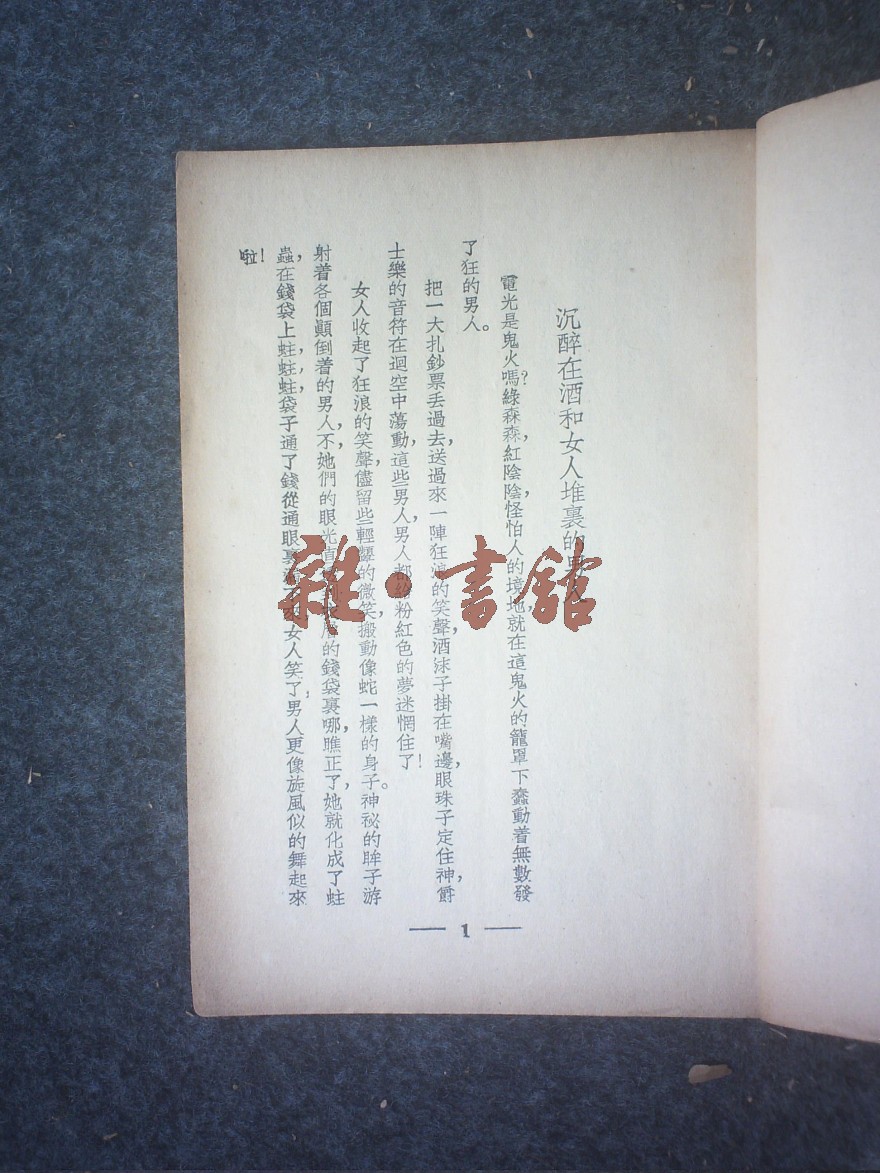 沉醉在酒和女人堆裏的
電光是鬼火嗎?綠森森,紅陰陰,怪怕人的境地,就在這鬼火的籠罩下,蠢動着無數發
了狂的男人。
把一大扎鈔票丢過去,送過來一陣狂浪的笑聲,酒沫子掛在嘴邊,眼珠子定住神,爵
士樂的音符在迴空中蕩動,這些男人,男人都給粉紅色的夢迷惘住了!
女人收起了狂浪的笑聲,儘留些輕顰的微笑,搬動像蛇一樣的身子。神祕的眸子游
射着各個顚倒着的男人,不,她們的眼光直的錢袋裏哪,瞧正了,她就化成了蛀
蟲,在錢袋上蛀,蛀,蛀,袋子通了,錢從通眼裏女人笑了,男人更像旋風似的舞起來
啦!
— 1 —
雜·書館